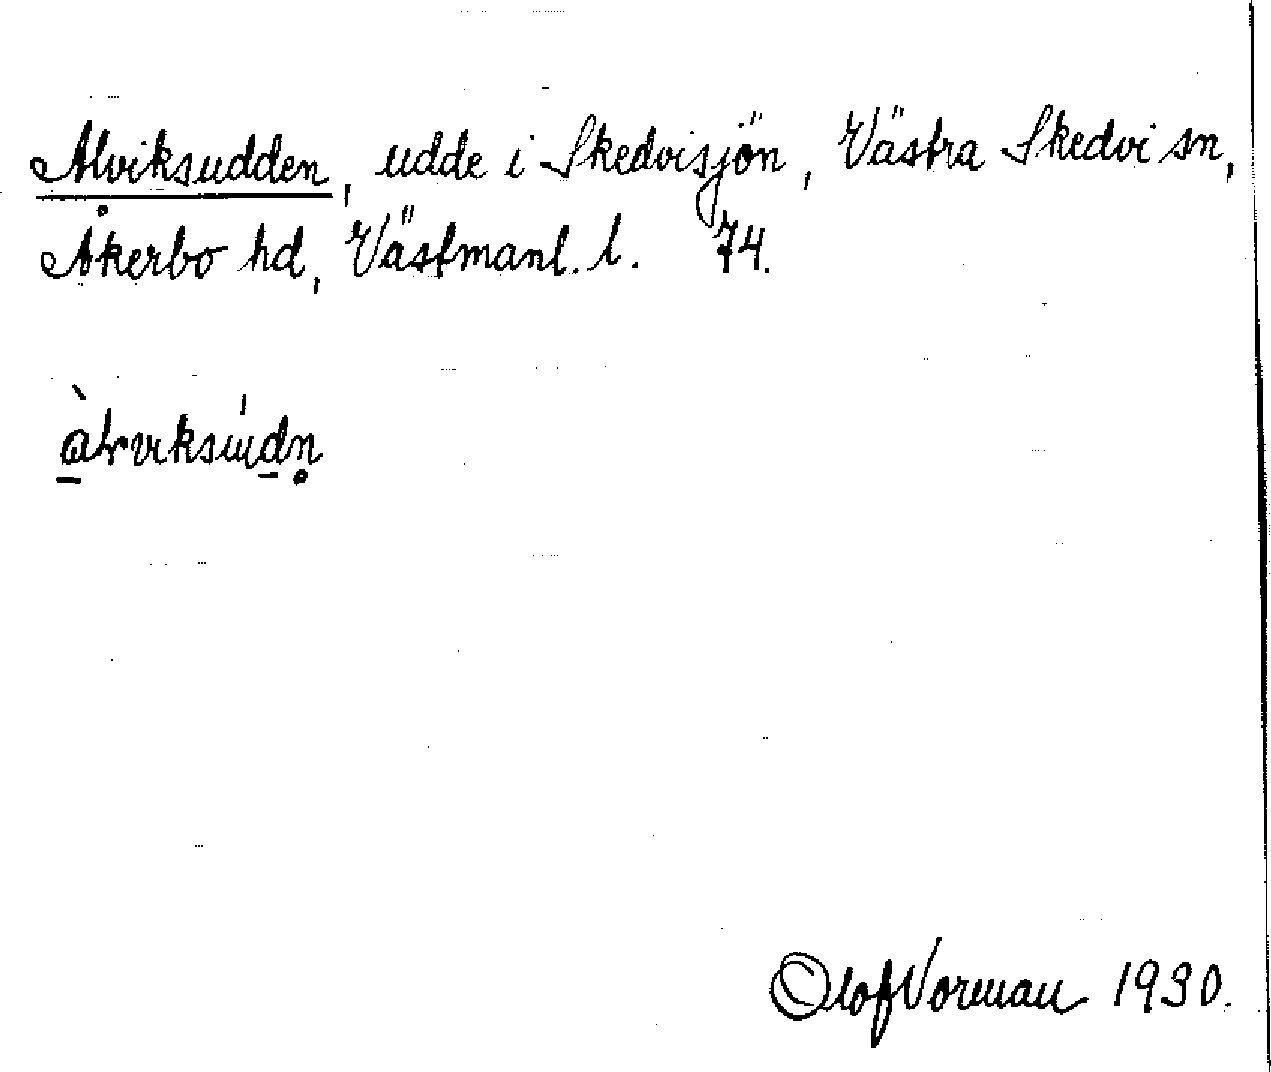 Alviksudden, udde i Skedvisjön, Västra Skedvi sn,
Åkerbo hd, Västmanl. l. 74.
Olof Vorman 1930.